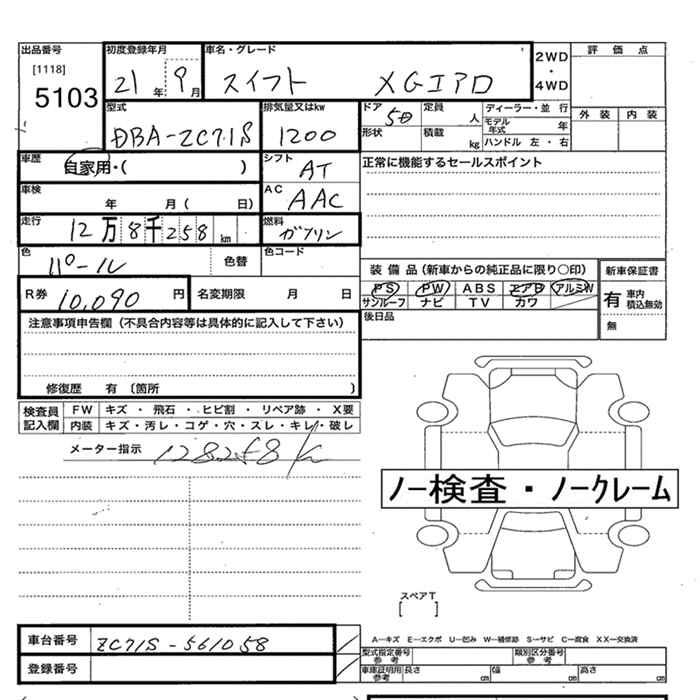 出品番号 初度登録年月 車名・グレード
[1118]
5103 21年 9月 スイフト XGIアロ 2WD・4WD 評価点
外装 内装
型式 排気量又はkw ドア 定員 ディーラー・並 行
DBA-ZC71S 1200 5D 人 モデル年式 年
形状 積載 kg ハンドル 左・右
車歴 自家用・( ) シフト AT 正常に機能するセールスポイント
車検 年 月( 日) AC AAC
走行 12万8千258km 燃料 ガソリン
色 パール 色替 色コード
装備品(新車からの純正品に限り〇印) 新車保証書
PS PW ABS エアB アルミW 有 車内積込無効
サンルーフ ナビ TV カワ 無
R券 10,090円 名変期限 月 日
後日品
注意事項申告欄(不具合内容等は具体的に記入して下さい)
修復歴 有〔箇所 )
検査員記入欄 FW キズ・飛石・ヒビ割・リペア跡・X要
内装 キズ・汚レ・コゲ・穴・スレ・キレ・破レ
メーター指示 128258k
ノー検査・ノークレーム
スペアT
[ ]
車台番号 ZC71S-561058
登録番号
A―キズ E―エクボ U―凹み W―補修跡 S―サビ C―腐食 XX―交換済
型式指定番号 参考 類別区分番号 参考
車庫証明用 参考 長さ cm 幅 cm 高さ cm